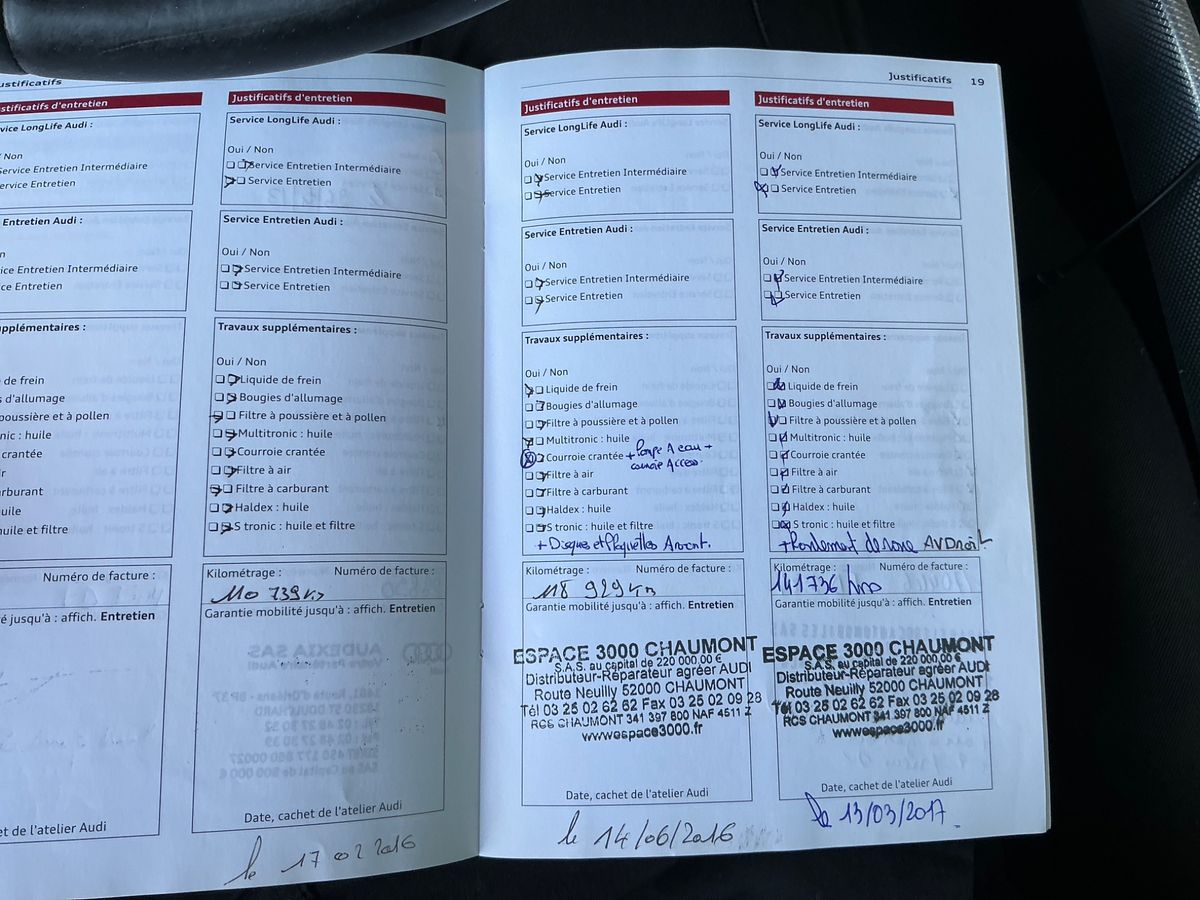 ustificatifs
stificatifs d'entretien
rvice LongLife Audi :
/ Non
Service Entretien Intermédiaire
Service Entretien
Entretien Audi :
n
ice Entretien Intermédiaire
ce Entretien
pplémentaires :
de frein
s d'allumage
poussière et à pollen
ronic : huile
crantée
ir
arburant
uile
huile et filtre
Numéro de facture :
é jusqu'à : affich. Entretien
et de l'atelier Audi
Justificatifs d'entretien
Service LongLife Audi :
Oui / Non
Service Entretien Intermédiaire
Service Entretien
Service Entretien Audi :
Oui / Non
Service Entretien Intermédiaire
Service Entretien
Travaux supplémentaires :
Oui / Non
Liquide de frein
Bougies d'allumage
Filtre à poussière et à pollen
Multitronic : huile
Courroie crantée
Filtre à air
Filtre à carburant
Haldex : huile
S tronic : huile et filtre
Kilométrage : Numéro de facture :
110 739 km
Garantie mobilité jusqu'à : affich. Entretien
Date, cachet de l'atelier Audi
le 17 02 2016
Justificatifs 19
Justificatifs d'entretien
Service LongLife Audi :
Oui / Non
Service Entretien Intermédiaire
Service Entretien
Service Entretien Audi :
Oui / Non
Service Entretien Intermédiaire
Service Entretien
Travaux supplémentaires :
Oui / Non
Liquide de frein
Bougies d'allumage
Filtre à poussière et à pollen
Multitronic : huile
Courroie crantée + Pompe A eau +
Access.
Filtre à air
Filtre à carburant
Haldex : huile
S tronic : huile et filtre
+ Disques et Plaquettes Avant.
Kilométrage : Numéro de facture :
118 929 km
Garantie mobilité jusqu'à : affich. Entretien
ESPACE 3000 CHAUMONT
S.A.S. au capital de 220 000,00 €
Distributeur-Réparateur agréer AUDI
Route Neuilly 52000 CHAUMONT
Tél 03 25 02 62 62 Fax 03 25 02 09 28
RCS CHAUMONT 341 397 800 NAF 4511 Z
www.espace3000.fr
Date, cachet de l'atelier Audi
le 14/06/2016
Justificatifs d'entretien
Service LongLife Audi :
Oui / Non
Service Entretien Intermédiaire
Service Entretien
Service Entretien Audi :
Oui / Non
Service Entretien Intermédiaire
Service Entretien
Travaux supplémentaires :
Oui / Non
Liquide de frein
Bougies d'allumage
Filtre à poussière et à pollen
Multitronic : huile
Courroie crantée
Filtre à air
Filtre à carburant
Haldex : huile
S tronic : huile et filtre
+ Roulement de roue AV Droit
Kilométrage : Numéro de facture :
141736 kms
Garantie mobilité jusqu'à : affich. Entretien
ESPACE 3000 CHAUMONT
S.A.S. au capital de 220 000,00 €
Distributeur-Réparateur agréer AUDI
Route Neuilly 52000 CHAUMONT
Tél 03 25 02 62 62 Fax 03 25 02 09 28
RCS CHAUMONT 341 397 800 NAF 4511 Z
www.espace3000.fr
Date, cachet de l'atelier Audi
le 13/03/2017.